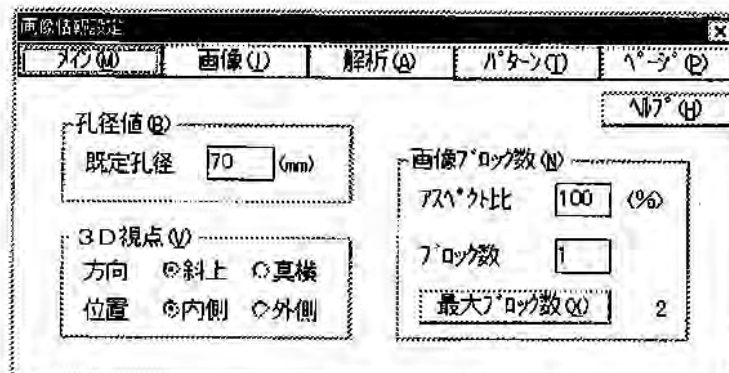 画像情報設定
メイン(M) 画像(J) 解析(A) パターン(T) ページ(P)
ヘルプ(H)
孔径値(B)
既定孔径 70 (mm)
3D視点(V)
方向 斜上 真横
位置 内側 外側
画像ブロック数(N)
アスペクト比 100 (%)
ブロック数 1
最大ブロック数(X) 2